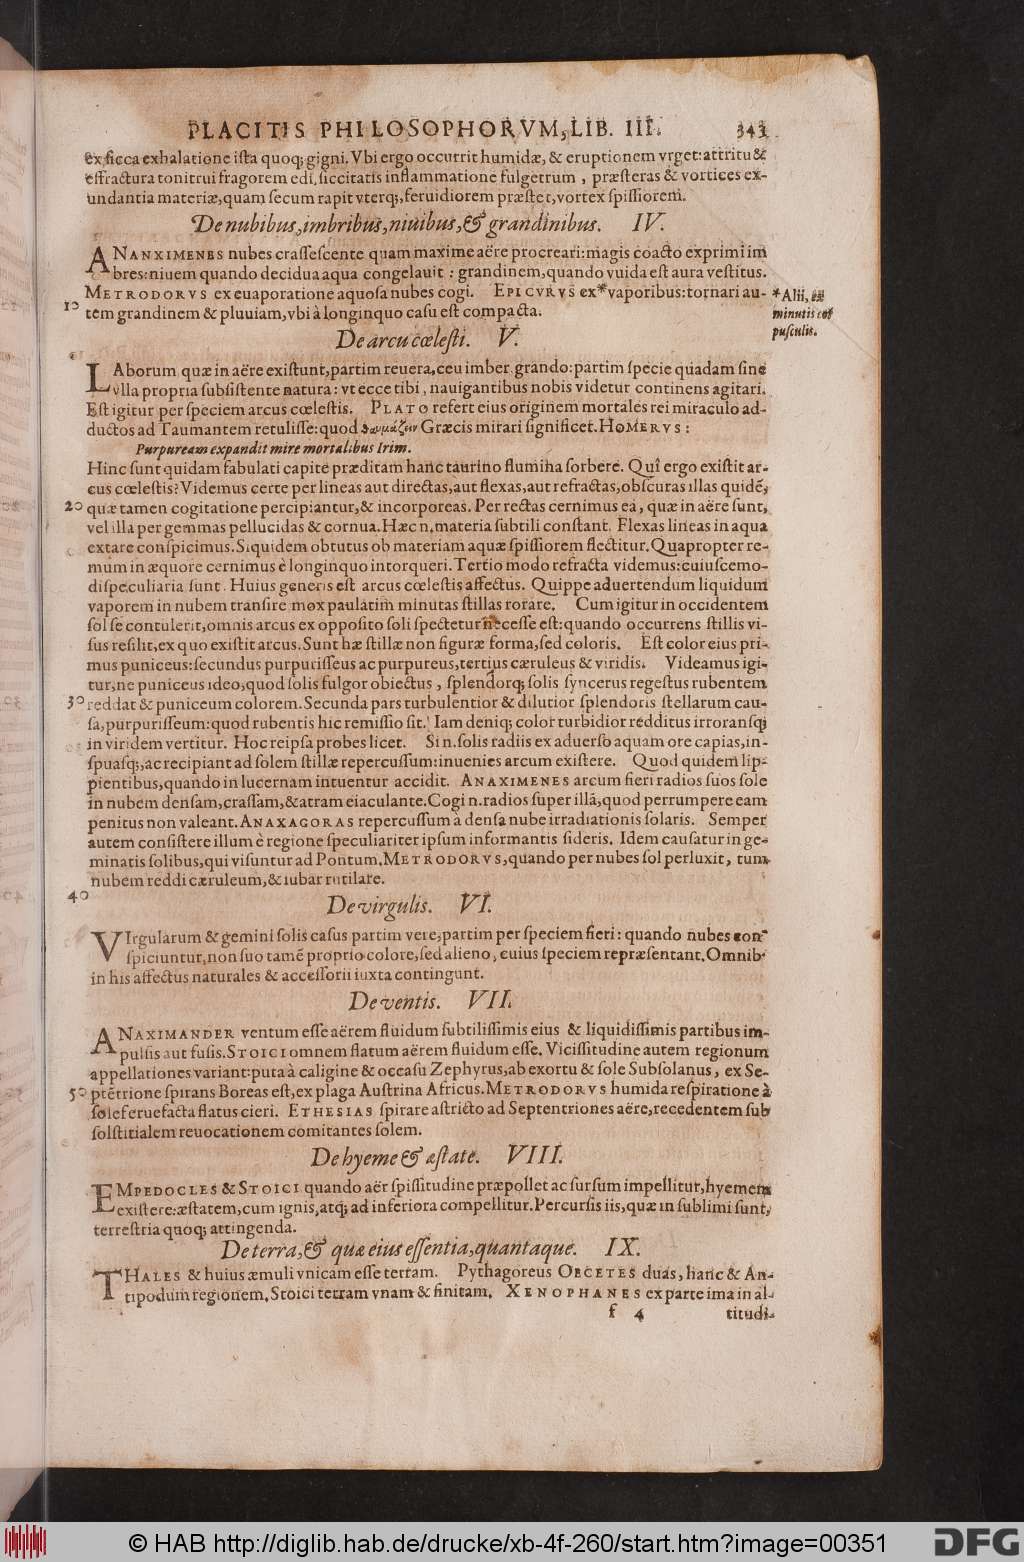 PLACITIS PHILOSOPHORVM, LIB. III. 343
ex sicca exhalatione ista quoq; gigni. Vbi ergo occurrit humidæ, & eruptionem vrget: attritu &
effractura tonitrui fragorem edi, siccitatis inflammatione fulgetrum, præsteras & vortices ex-
undantia materiæ, quam secum rapit vterq;, feruidiorem præster, vortex spissiorem.
De nubibus, imbribus, niuibus, & grandinibus. IV.
ANANXIMENES nubes crassescente quam maxime aëre procreari: magis coacto exprimi im
bres: niuem quando decidua aqua congelauit: grandinem, quando vuida est aura vestitus.
METRODORVS ex euaporatione aquosa nubes cogi. EPICVRVS ex * vaporibus: tornari au-
* Alii, ex
minutis cor
pusculis.
10 tem grandinem & pluuiam, vbi à longinquo casu est compacta.
De arcu cœlesti. V.
LAborum quæ in aëre existunt, partim reuera, ceu imber grando: partim specie quadam sine
vlla propria subsistente natura: vt ecce tibi, nauigantibus nobis videtur continens agitari.
Est igitur per speciem arcus cœlestis. PLATO refert eius originem mortales rei miraculo ad-
ductos ad Taumantem retulisse: quod θαυμάζειν Græcis mirari significet. HOMERVS:
Purpuream expandit mire mortalibus Irim.
Hinc sunt quidam fabulati capite præditam hanc taurino flumina sorbere. Quî ergo existit ar-
cus cœlestis? Videmus certe per lineas aut directas, aut flexas, aut refractas, obscuras illas quidẽ,
20 quæ tamen cogitatione percipiantur, & incorporeas. Per rectas cernimus ea, quæ in aëre sunt,
vel illa per gemmas pellucidas & cornua. Hæc n. materia subtili constant. Flexas lineas in aqua
extare conspicimus. Siquidem obtutus ob materiam aquæ spissiorem flectitur. Quapropter re-
mum in æquore cernimus è longinquo intorqueri. Tertio modo refracta videmus: cuiuscemo-
di speculiaria sunt. Huius generis est arcus cœlestis affectus. Quippe aduertendum liquidum
vaporem in nubem transire mox paulatim minutas stillas rorare. Cum igitur in occidentem
sol se contulerit, omnis arcus ex opposito soli spectetur necesse est: quando occurrens stillis vi-
sus resilit, ex quo existit arcus. Sunt hæ stillæ non figuræ forma, sed coloris. Est color eius pri-
mus puniceus: secundus purpurisseus ac purpureus, tertius cæruleus & viridis. Videamus igi-
tur, ne puniceus ideo, quod solis fulgor obiectus, splendorq; solis syncerus regestus rubentem
30 reddat & puniceum colorem. Secunda pars turbulentior & dilutior splendoris stellarum cau-
sa, purpurisseum: quod rubentis hic remissio sit. Iam deniq; color turbidior redditus irroransq;
in viridem vertitur. Hoc reipsa probes licet. Si n. solis radiis ex aduerso aquam ore capias, in-
spuasq;, ac recipiant ad solem stillæ repercussum: inuenies arcum existere. Quod quidem lip-
pientibus, quando in lucernam intuentur accidit. ANAXIMENES arcum fieri radios suos sole
in nubem densam, crassam, & atram eiaculante. Cogi n. radios super illã, quod perrumpere eam
penitus non valeant. ANAXAGORAS repercussum à densa nube irradiationis solaris. Semper
autem consistere illum è regione speculiariter ipsum informantis sideris. Idem causatur in ge-
minatis solibus, qui visuntur ad Pontum. METRODORVS, quando per nubes sol perluxit, tum
nubem reddi cæruleum, & iubar rutilare.
40
De virgulis. VI.
VIrgularum & gemini solis casus partim vere, partim per speciem fieri: quando nubes con-
spiciuntur, non suo tamẽ proprio colore, sed alieno, cuius speciem repræsentant. Omnib.
in his affectus naturales & accessorii iuxta contingunt.
De ventis. VII.
ANAXIMANDER ventum esse aërem fluidum subtilissimis eius & liquidissimis partibus im-
pulsis aut fusis. STOICI omnem flatum aërem fluidum esse. Vicissitudine autem regionum
appellationes variant: puta à caligine & occasu Zephyrus, ab exortu & sole Subsolanus, ex Se-
50 ptẽtrione spirans Boreas est, ex plaga Austrina Africus. METRODORVS humida respiratione à
sole feruefacta flatus cieri. ETHESIAS spirare astricto ad Septentriones aëre, recedentem sub
solstitialem reuocationem comitantes solem.
De hyeme & æstate. VIII.
EMPEDOCLES & STOICI quando aër spissitudine præpollet ac sursum impellitur, hyemem
existere: æstatem, cum ignis, atq; ad inferiora compellitur. Percursis iis, quæ in sublimi sunt,
terrestria quoq; attingenda.
De terra, & quæ eius essentia, quantaque. IX.
THALES & huius æmuli vnicam esse terram. Pythagoreus OECETES duas, hanc & An-
tipodum regionem. Stoici terram vnam & finitam. XENOPHANES ex parte ima in al-
f 4 titudi-
© HAB http://diglib.hab.de/drucke/xb-4f-260/start.htm?image=00351
DFG